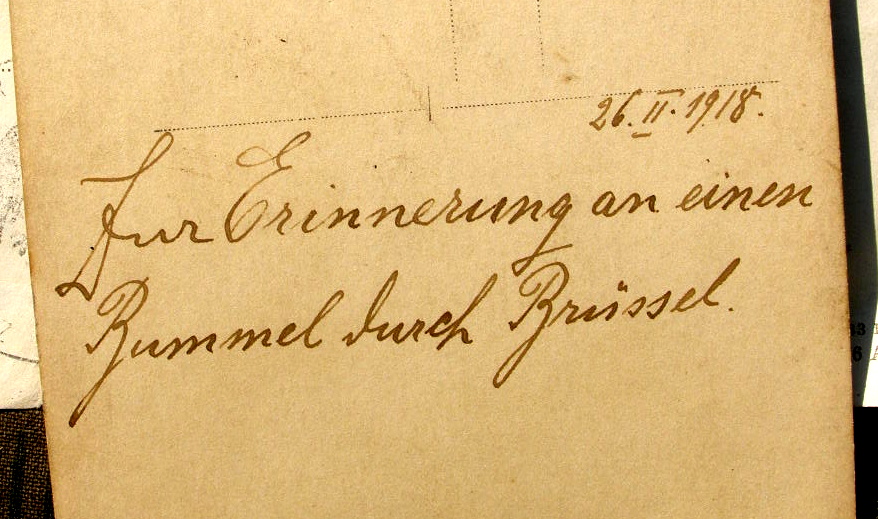 26. II. 1918.
Zur Erinnerung an einen
Bummel durch Brüssel.